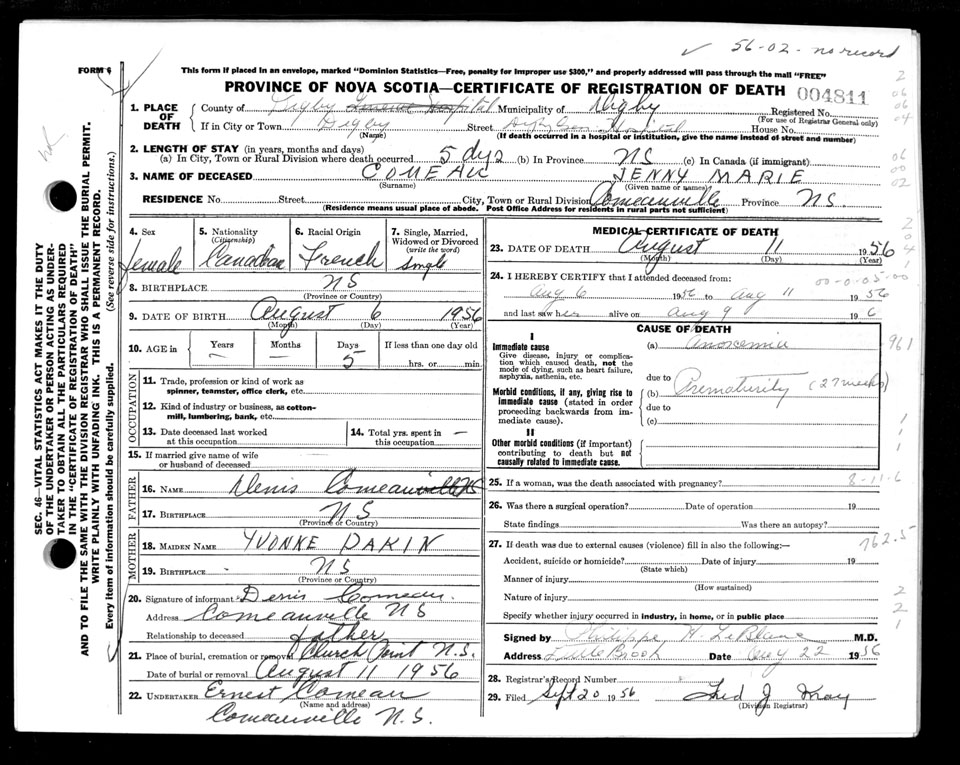 ✓ 56-02- no record
FORM 6
This form if placed in an envelope, marked "Dominion Statistics—Free, penalty for improper use $300," and properly addressed will pass through the mail "FREE"
PROVINCE OF NOVA SCOTIA—CERTIFICATE OF REGISTRATION OF DEATH 004811
1. PLACE OF DEATH
County of Digby General Hospital Municipality of Digby Registered No.
(For use of Registrar General only)
If in City or Town Digby Street Hospital House No.
(Name) (If death occurred in a hospital or institution, give the name instead of street and number)
2. LENGTH OF STAY (in years, months and days)
(a) In City, Town or Rural Division where death occurred 5 dys (b) In Province NS (c) In Canada (if immigrant)
3. NAME OF DECEASED COMEAU JENNY MARIE
(Surname) (Given name or names)
RESIDENCE No. Street City, Town or Rural Division Comeauville Province N.S.
(Residence means usual place of abode. Post Office Address for residents in rural parts not sufficient)
SEC. 46—VITAL STATISTICS ACT MAKES IT THE DUTY
OF THE UNDERTAKER OR PERSON ACTING AS UNDER-
TAKER TO OBTAIN ALL THE PARTICULARS REQUIRED
IN THE "CERTIFICATE OF REGISTRATION OF DEATH"
AND TO FILE THE SAME WITH THE DIVISION REGISTRAR WHO SHALL ISSUE THE BURIAL PERMIT.
WRITE PLAINLY WITH UNFADING INK. THIS IS A PERMANENT RECORD.
Every item of information should be carefully supplied. (See reverse side for instructions.)
4. Sex
female
5. Nationality
(Citizenship)
Canadian
6. Racial Origin
French
7. Single, Married,
Widowed or Divorced
(write the word)
Single
8. BIRTHPLACE NS
(Province or Country)
9. DATE OF BIRTH August 6 1956
(Month) (Day) (Year)
10. AGE in Years Months Days If less than one day old
— — 5 hrs. or min.
OCCUPATION
11. Trade, profession or kind of work as
spinner, teamster, office clerk, etc.
12. Kind of industry or business, as cotton-
mill, lumbering, bank, etc.
13. Date deceased last worked
at this occupation
14. Total yrs. spent in
this occupation —
15. If married give name of wife
or husband of deceased
FATHER
16. NAME Denis Comeauville NS
17. BIRTHPLACE NS
(Province or Country)
MOTHER
18. MAIDEN NAME YVONNE DAKIN
19. BIRTHPLACE NS
(Province or Country)
20. Signature of informant Denis Comeau
Address Comeauville NS
Relationship to deceased father
21. Place of burial, cremation or removal Church Point N.S.
Date of burial or removal August 11 1956
22. UNDERTAKER Ernest Comeau
(Name and address)
Comeauville N.S.
MEDICAL CERTIFICATE OF DEATH
23. DATE OF DEATH August 11 1956
(Month) (Day) (Year)
24. I HEREBY CERTIFY that I attended deceased from: 00-0-05-00
Aug 6 1956 to Aug 11 1956
and last saw her alive on Aug 9 196
CAUSE OF DEATH
I
Immediate cause
Give disease, injury or complica-
tion which caused death, not the
mode of dying, such as heart failure,
asphyxia, asthenia, etc.
(a) Anoxemia 961
due to
Morbid conditions, if any, giving rise to
immediate cause (stated in order
proceeding backwards from im-
mediate cause).
(b) Prematurity (27 weeks)
due to
(c)
II
Other morbid conditions (if important)
contributing to death but not
causally related to immediate cause.
25. If a woman, was the death associated with pregnancy? 8-11-6
26. Was there a surgical operation? Date of operation 19
State findings Was there an autopsy?
27. If death was due to external causes (violence) fill in also the following:— 762.5
Accident, suicide or homicide? Date of injury 19
(State which)
Manner of injury
(How sustained)
Nature of injury
Specify whether injury occurred in industry, in home, or in public place
Signed by Philippe H. LeBlanc M.D.
Address Little Brook Date Aug 22 1956
28. Registrar's Record Number
29. Filed Sept 20 1956 Fred J
(Division Registrar)